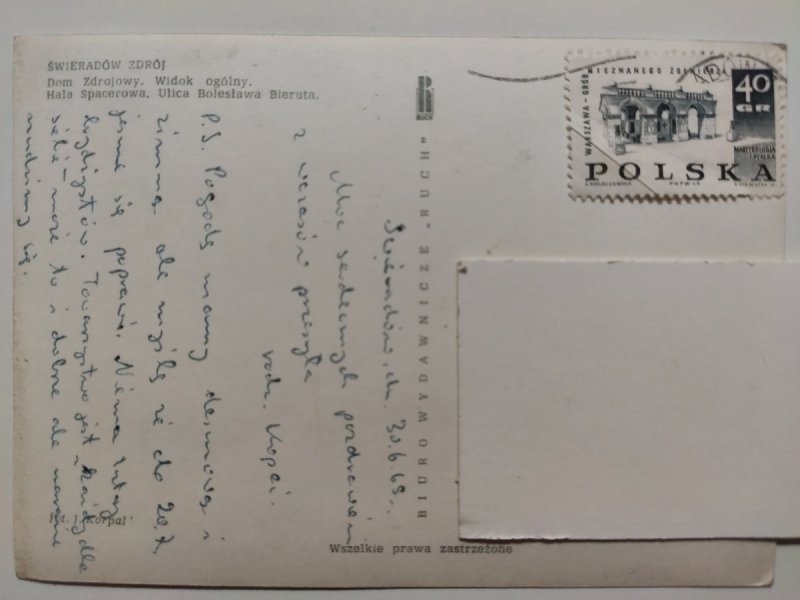 ŚWIERADÓW ZDRÓJ
Dom Zdrojowy. Widok ogólny.
Hala Spacerowa. Ulica Bolesława Bieruta.
RUCH
BIURO WYDAWNICZE „RUCH"
WARSZAWA - GRÓB NIEZNANEGO ŻOŁNIERZA
40 GR
MARTYROLOGIA I WALKA
POLSKA
Świeradów, dn. 30.6.69r.
Moc serdecznych pozdrowień
z wczasów przesyła
rodz. Kopci.
P.S. Pogodę mamy deszczową i
zimną ale myślę że do 20.7.
jeszcze się poprawi. Niema tutaj
brydżystów. Towarzystwo jest „każdy dla
siebie" może to i dobre ale
nudzimy się.
Fot. J. Korpal
Wszelkie prawa zastrzeżone